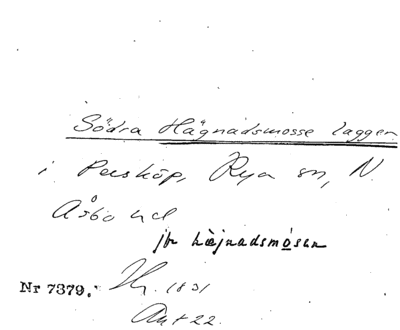 Södra Hägnadsmosse laggen
i Persköp, Rya sn, N.
Åsbo hd
jfr hæjnadsmósen
Nr 7379. Hr. 1831
Akt 22.